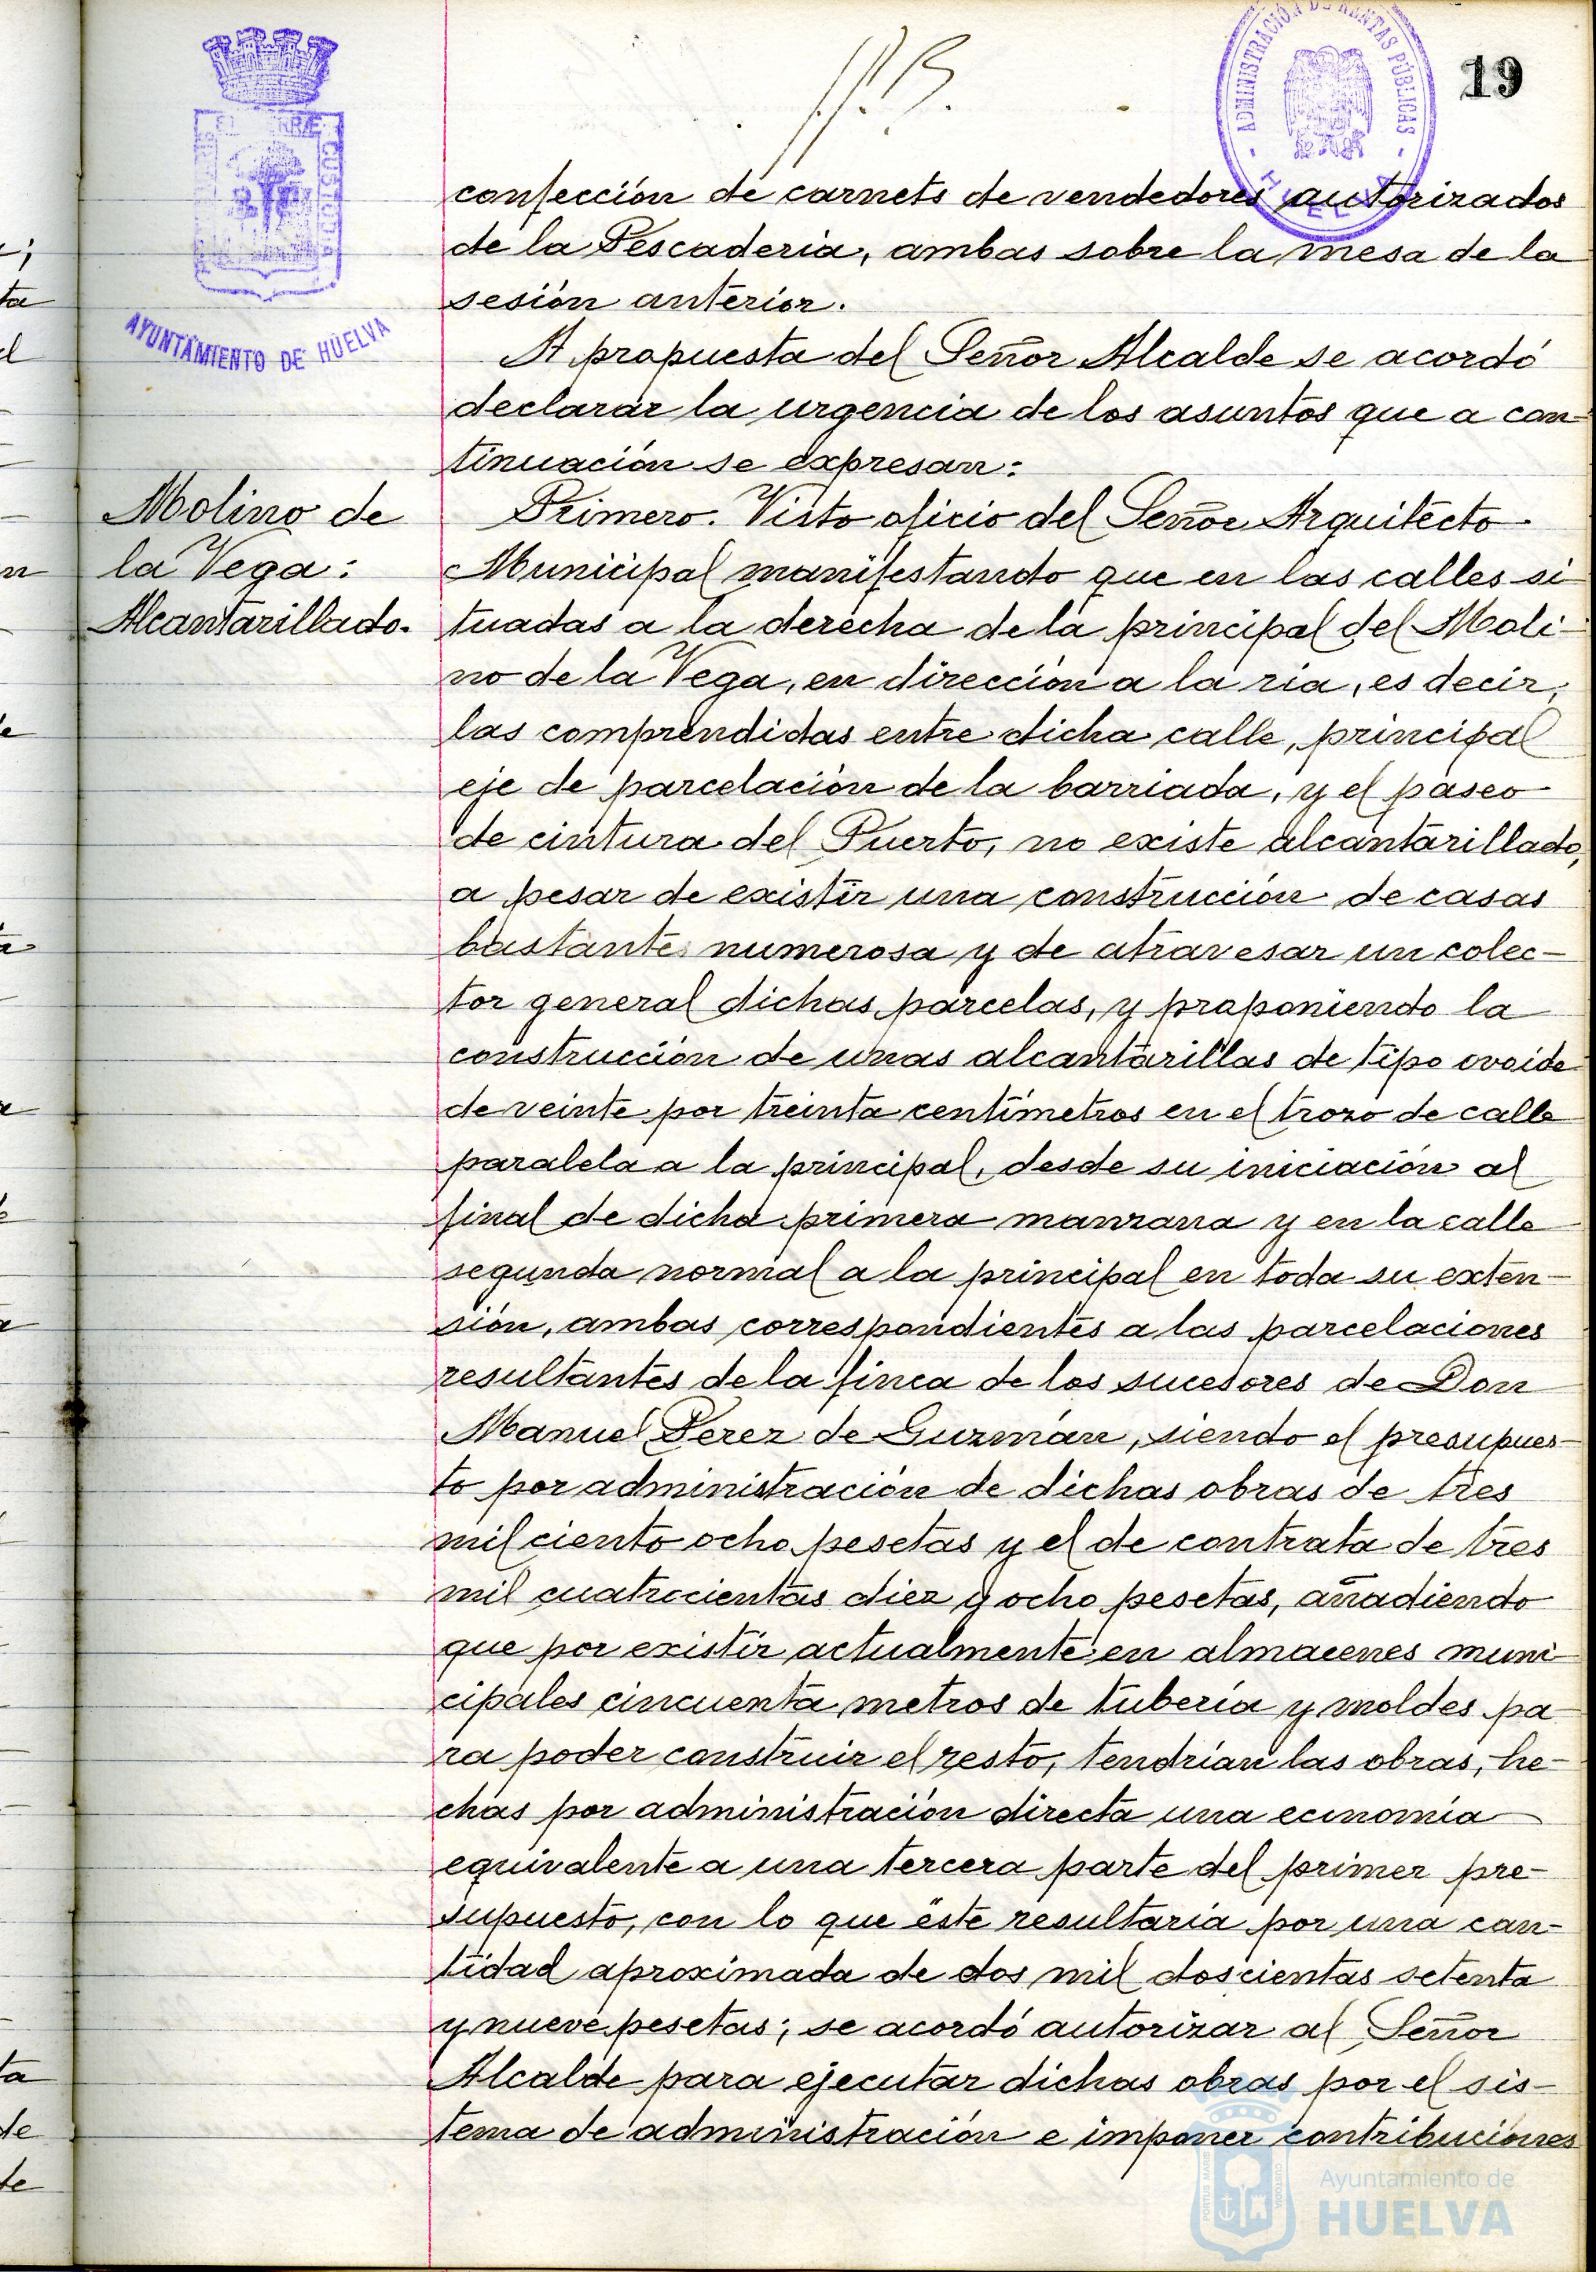 19
ADMINISTRACIÓN DE RENTAS PÚBLICAS
HUELVA
AYUNTAMIENTO DE HUELVA
confección de carnets de vendedores autorizados
de la Pescaderia, ambas sobre la mesa de la
sesión anterior.
A propuesta del Señor Alcalde se acordó
declarar la urgencia de los asuntos que a con-
tinuación se expresan:
Molino de
la Vega:
Alcantarillado.
Primero. Visto oficio del Señor Arquitecto
Municipal manifestando que en las calles si-
tuadas a la derecha de la principal del Moli-
no de la Vega, en dirección a la ria, es decir,
las comprendidas entre dicha calle, principal
eje de parcelación de la barriada, y el paseo
de cintura del Puerto, no existe alcantarillado,
a pesar de existir una construcción de casas
bastante numerosa y de atravesar un colec-
tor general dichas parcelas, y proponiendo la
construcción de unas alcantarillas de tipo ovoide
de veinte por treinta centímetros en el trozo de calle
paralela a la principal, desde su iniciación al
final de dicha primera manzana y en la calle
segunda normal a la principal en toda su exten-
sión, ambas correspondientes a las parcelaciones
resultantes de la finca de los sucesores de Don
Manuel Perez de Guzmán, siendo el presupues-
to por administración de dichas obras de tres
mil ciento ocho pesetas y el de contrata de tres
mil cuatrocientas diez y ocho pesetas, añadiendo
que por existir actualmente en almacenes muni-
cipales cincuenta metros de tubería y moldes pa-
ra poder construir el resto, tendrían las obras, he-
chas por administración directa una economía
equivalente a una tercera parte del primer pre-
supuesto, con lo que éste resultaría por una can-
tidad aproximada de dos mil doscientas setenta
y nueve pesetas; se acordó autorizar al Señor
Alcalde para ejecutar dichas obras por el sis-
tema de administración e imponer contribuciones
Ayuntamiento de
HUELVA